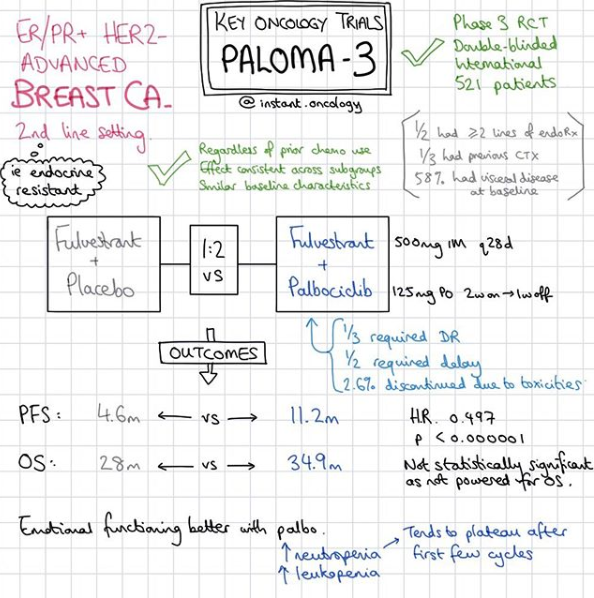 KEY ONCOLOGY TRIALS
PALOMA-3
@instant.oncology
ER/PR+ HER2-
ADVANCED
BREAST CA
2nd line setting.
ie endocrine
resistant
Phase 3 RCT
Double-blinded
International
521 patients
Regardless of prior chemo use
Effect consistent across subgroups
Similar baseline characteristics
1/2 had ≥2 lines of endoRx
1/3 had previous CTX
58% had visceral disease
at baseline
Fulvestrant
+
Placebo
1:2
vs
Fulvestrant
+
Palbociclib
500mg IM q28d
125mg PO 2won → 1woff
1/3 required DR
1/2 required delay
2.6% discontinued due to toxicities
OUTCOMES
PFS: 4.6m ← vs → 11.2m HR. 0.497
p < 0.000001
OS: 28m ← vs → 34.9m Not statistically significant
as not powered for OS.
Emotional functioning better with palbo.
↑ neutropenia → Tends to plateau after
first few cycles
↑ leukopenia